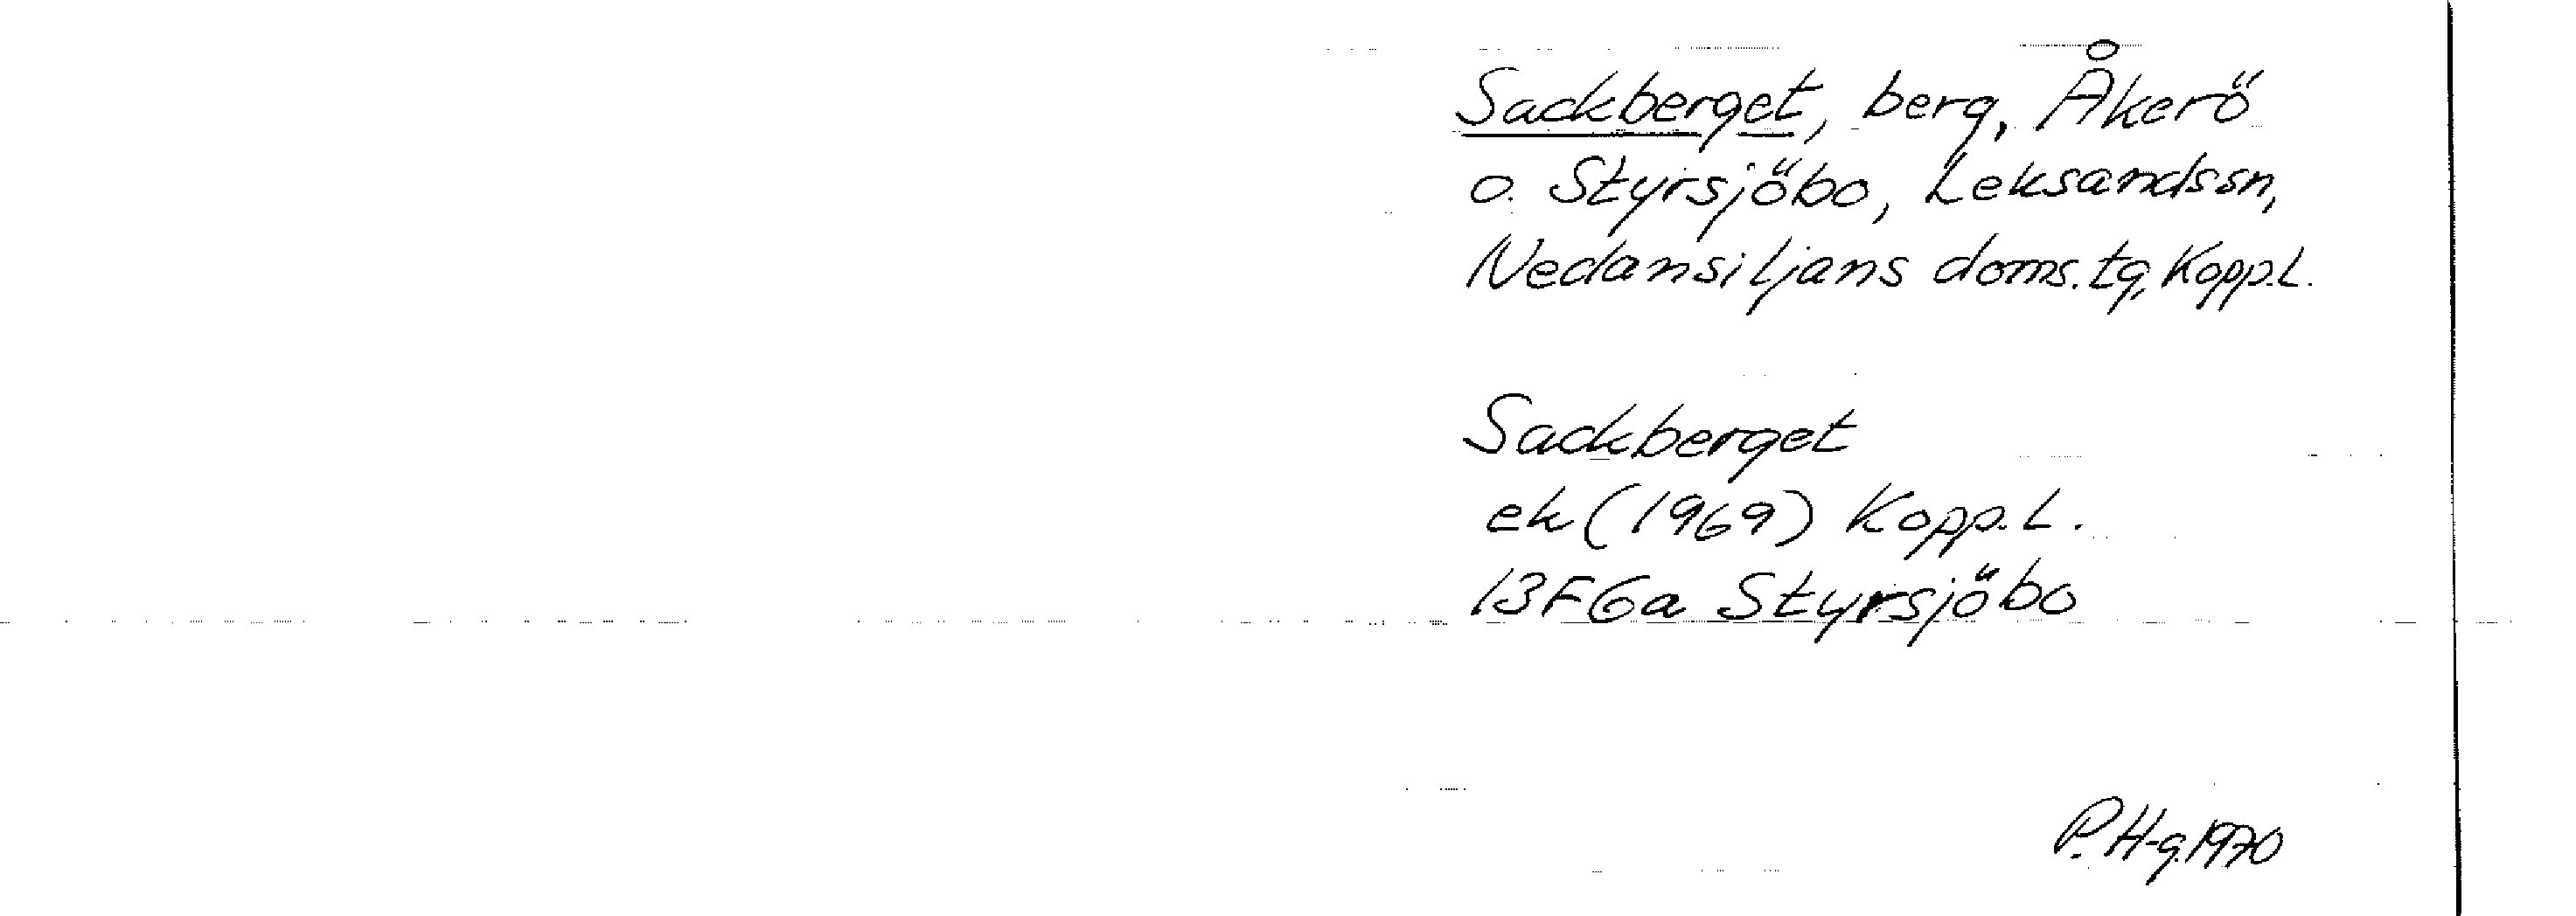 Sackberget, berg, Åkerö
o. Styrsjöbo, Leksandssn,
Nedansiljans doms.tg, Kopp.L.
Sackberget
ek (1969) Kopp.L.
13F6a Styrsjöbo
P. H-g. 1970